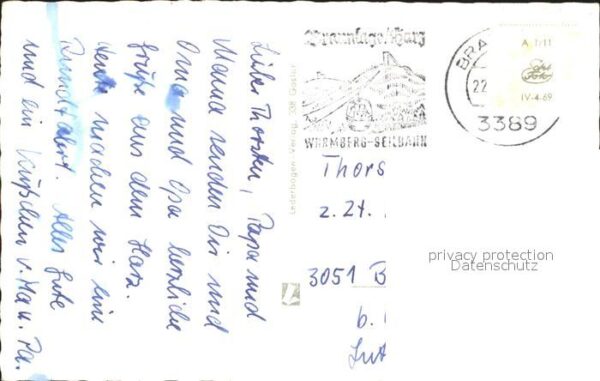 Lieber Thorsten, Papa und
Mama senden Dir und
Oma und Opa herzliche
Grüße aus dem Harz.
Heute machen wir eine
Rundfahrt. Alles Gute
und ein Küßchen v. Ma u. Pa.
Lederbogen Verlag 338 Goslar
Braunlage/Harz
WURMBERG-SEILBAHN
BRA
22.
3389
A 1/11
Echte Foto
IV-4-69
Thors
z. Zt.
3051 B
b.
privacy protection
Datenschutz